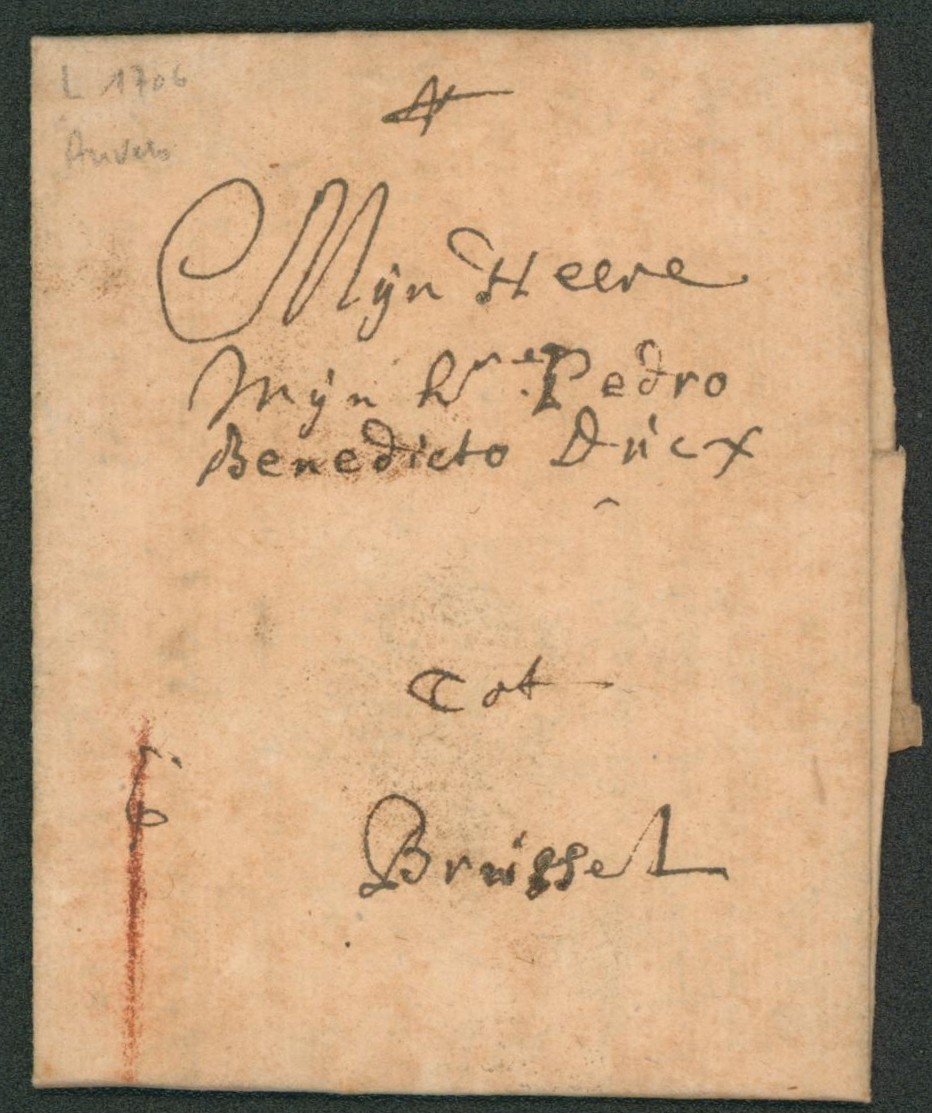 L 1706
Anvers
Mÿn Heere
Mÿn hr Pedro
Benedicto Dúcx
Tot
Brússel